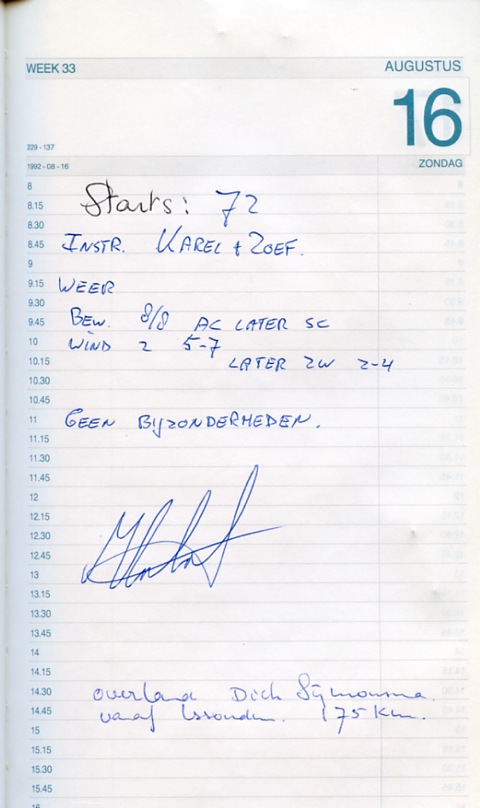 WEEK 33
AUGUSTUS
16
229 - 137
1992 - 08 - 16
ZONDAG
8
8.15
Starts: 72
8.30
8.45
INSTR. KAREL + ZOEF.
9
9.15
WEER
9.30
9.45
BEW. 8/8 AC LATER SC
10
WIND Z 5-7
10.15
LATER ZW 2-4
10.30
10.45
11
GEEN BIJZONDERHEDEN.
11.15
11.30
11.45
12
12.15
12.30
12.45
13
13.15
13.30
13.45
14
14.15
14.30
overland Dick Sijmonsma.
14.45
vanaf Issoudun. 175 Km.
15
15.15
15.30
15.45
16